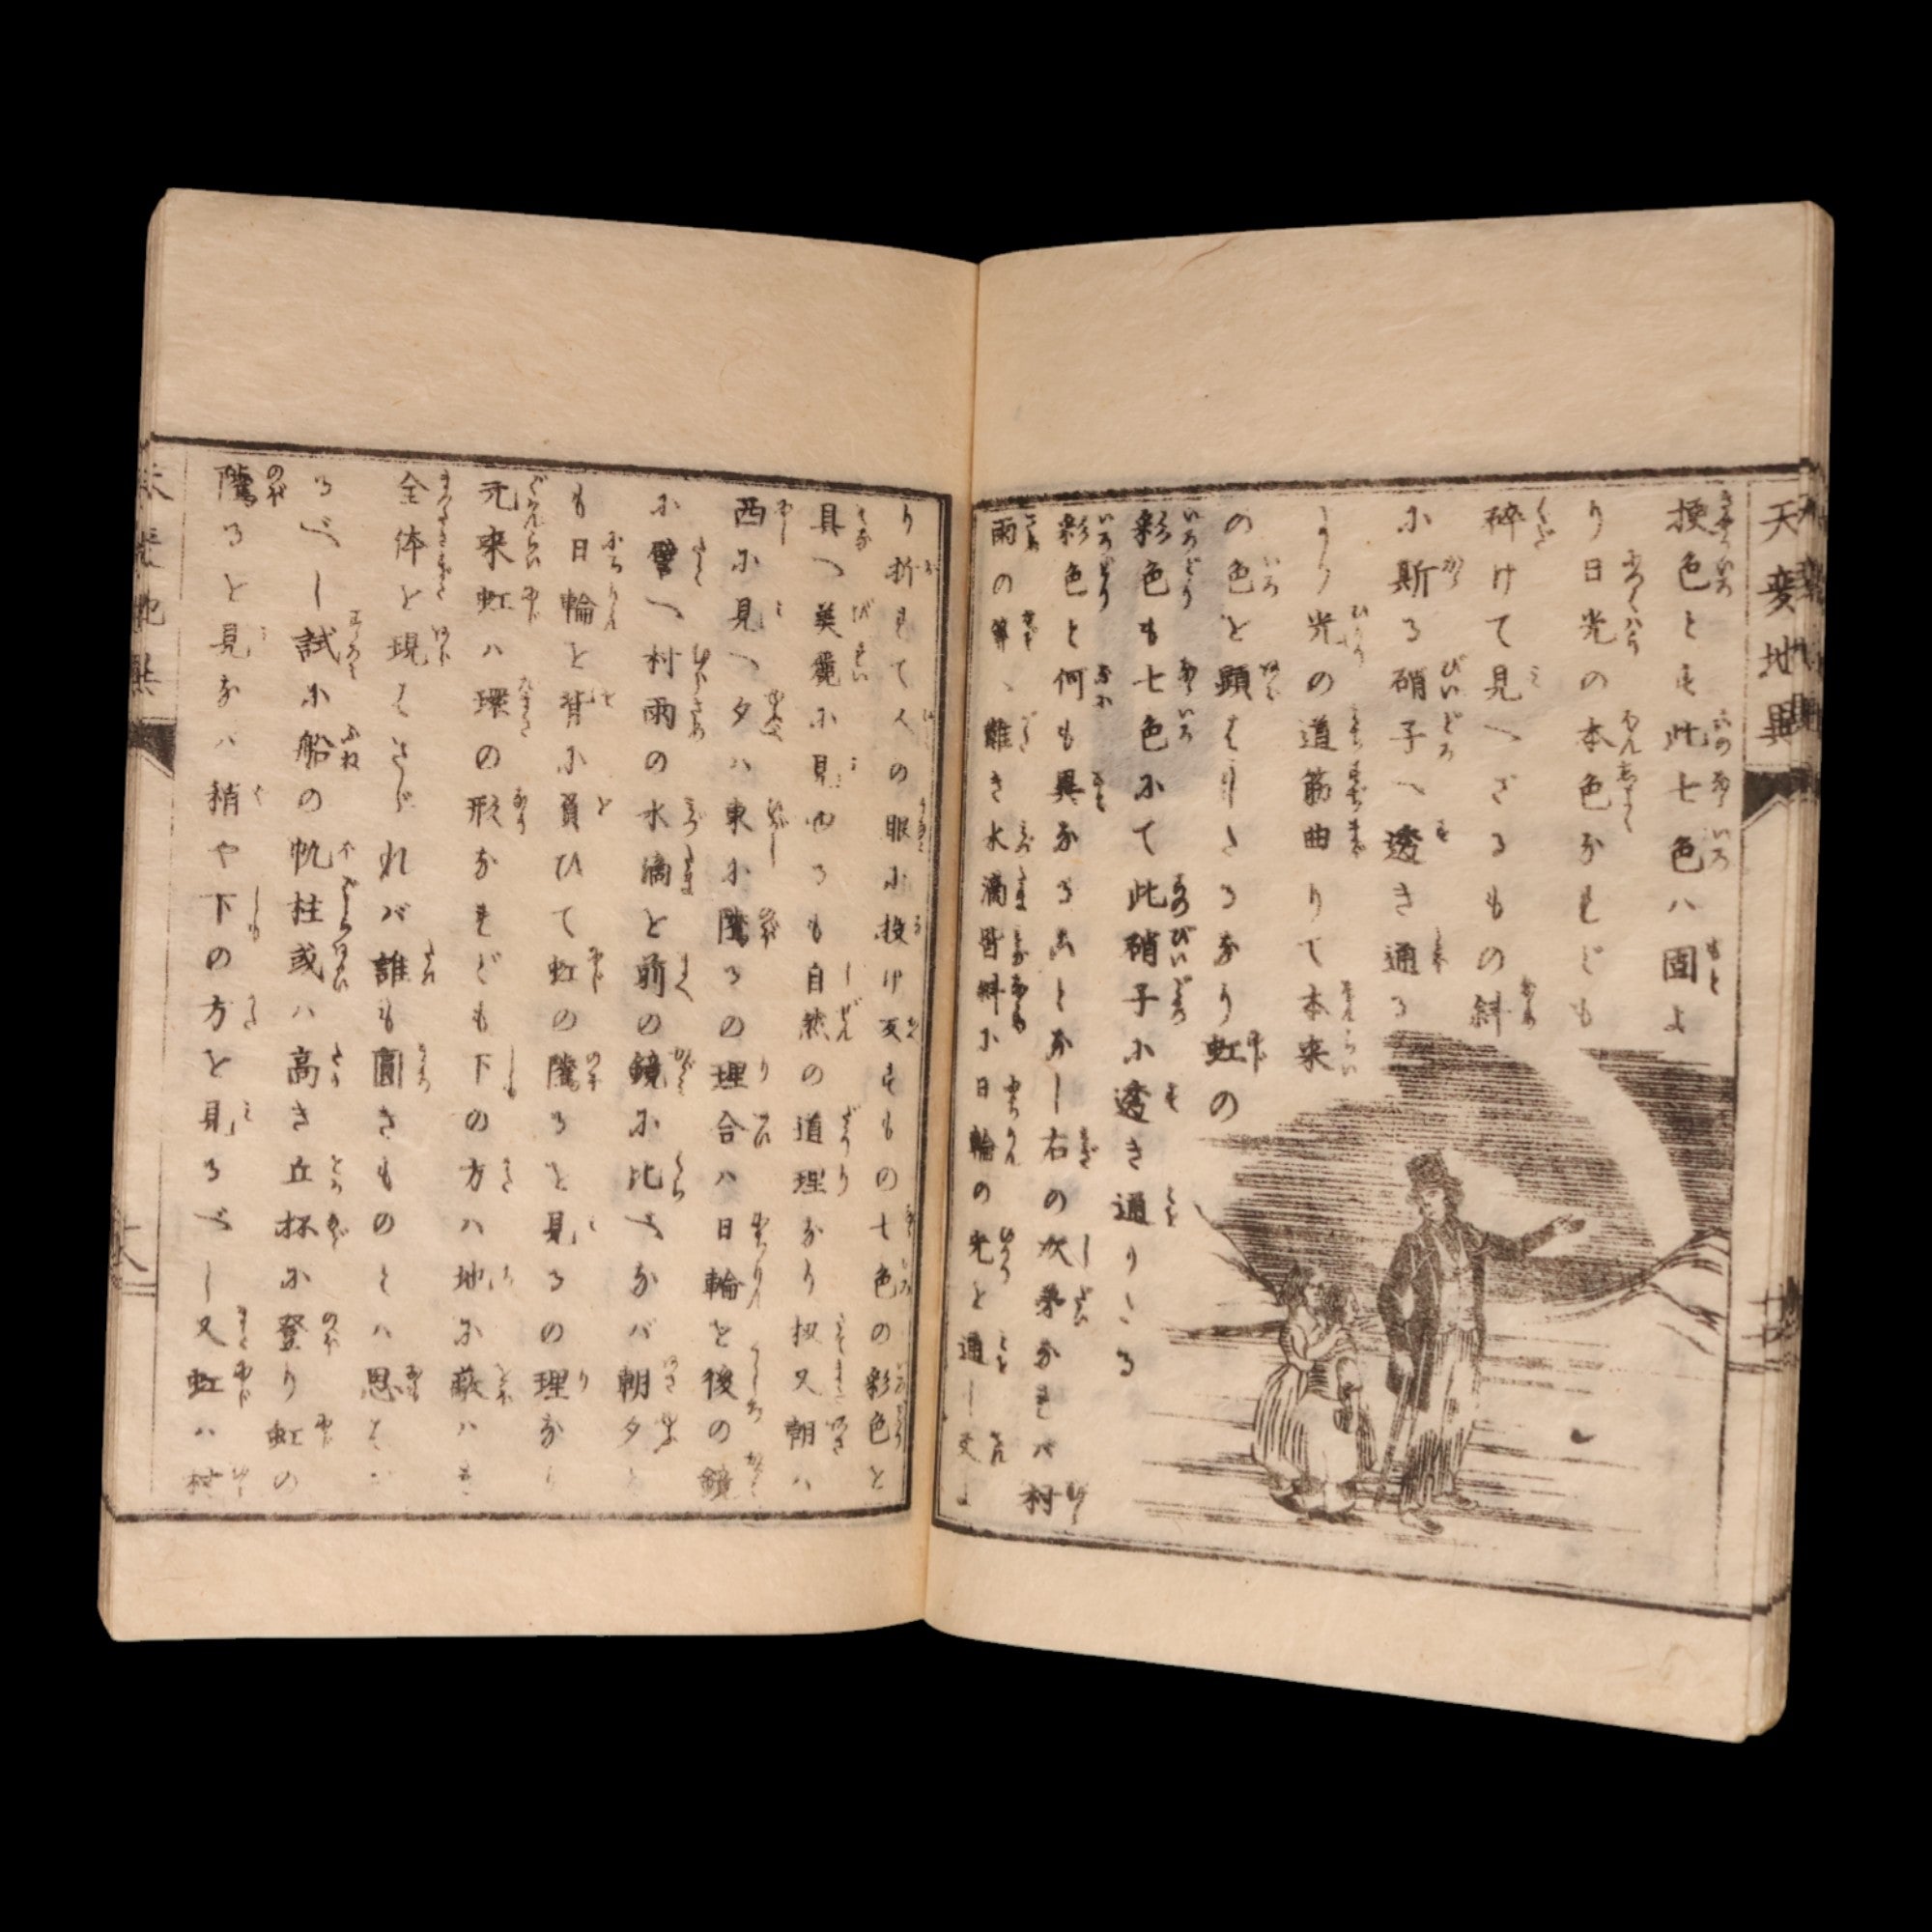 天変地異
挍色とも此七色ハ固よ
り日光の本色なれども
碎けて見へざるもの斜
に斯る硝子へ透き通る
より光の道筋曲りて本来
の色を顕はしたるなり虹の
彩色も七色にて此硝子に透き通りたる
彩色と何も異なることなし右の次第なれバ村
雨の降る難き水滴皆斜に日輪の光を通し又よ
り折れて人の眼に投げ反すもの七色の彩色を
具へ美麗に見ゆるも自然の道理なり扨又朝ハ
西に見へ夕ハ東に騰るの理合ハ日輪を後の鏡
に譬へ村雨の水滴を前の鏡に比べなバ朝夕と
も日輪を背に負ひて虹の騰るを見るの理なり
元来虹ハ環の形なれども下の方ハ地に蔽ハれ
全体を現はさゞれバ誰も圓きものとハ思はざ
るべし試に船の帆柱或ハ高き丘杯に登り虹の
騰るを見なバ稍や下の方を見るべし又虹ハ村